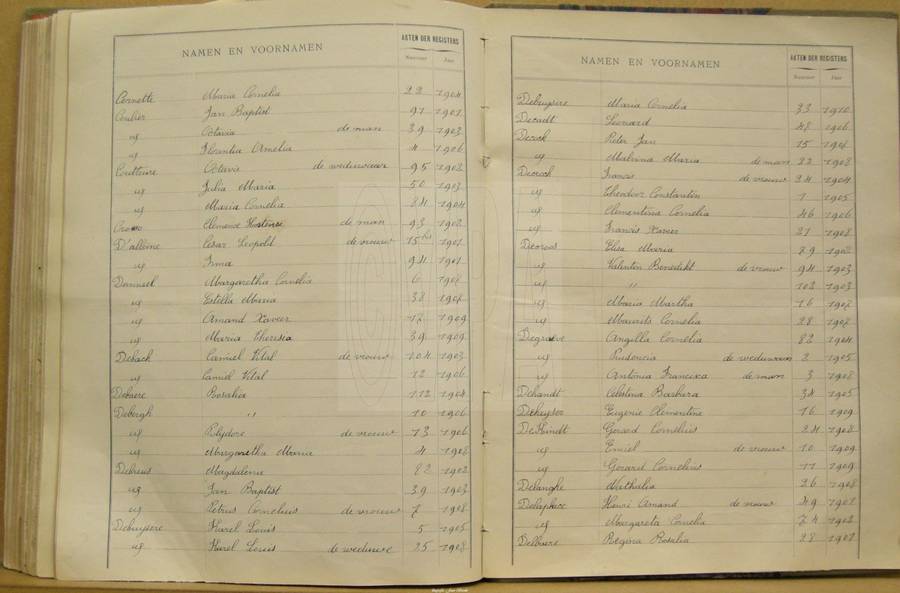 NAMEN EN VOORNAMEN AKTEN DER REGISTERS
Nummer Jaar
Cornette Maria Cornelia 22 1904
Coulier Jan Baptist 91 1901
uy Octavia de man 39 1903
uy Florentia Amelia 4 1906
Coutteure Octavia de weduwnaar 95 1902
uy Julia Maria 50 1903
uy Maria Cornelia 84 1904
Clemence Hortense de man 93 1902
D'alleine Cesar Leopold de vrouw 15 bis 1901
uy Irma 94 1901
Dammel Margaretha Cornelia 6
uy Estella Maria 38
uy Amand Xaveer 12 1909
uy Maria Theresia 39 1909
Debach Camiel Vital de vrouw 104 1903
uy Camiel Vital 12 1906
Debaere Rosalia 112 1904
Debergh " 10 1906
uy Polydore de vrouw 13 1906
uy Margaretha Maria 4 1908
Debreus Magdalena 82 1902
uy Jan Baptist 39 1903
uy Petrus Cornelius de vrouw 7 1908
Debuysere Karel Louis 5 1905
uy Karel Louis de weduwe 25 1908
NAMEN EN VOORNAMEN AKTEN DER REGISTERS
Nummer Jaar
Debuysere Maria Cornelia 33 1910
Decadt Leonard 48 1906
Decock Pieter Jan 15
uy Malvina Maria de man 22 1908
Decrock Francis de vrouw 24 1904
uy Theodoor Constantin 1 1905
uy Clementina Cornelia 46 1906
uy Francis Xaveer 21 1908
Decroos Elisa Maria 79 1902
uy Valentin Benedikt de vrouw 94 1903
uy " 102 1903
uy Maria Martha 16 1907
uy Maurits Cornelia 28 1907
Degraeve Angilla Cornelia 82 1904
uy Prudencia de weduwnaar 2 1905
uy Antonia Francisca de man 3 1908
Dehandt Celestina Barbara 34 1905
Dehuyser Eugenie Clementine 16 1909
De Hindt Gerard Cornelius 24 1908
uy Emiel de vrouw 10 1909
uy Gerard Cornelius 11 1909
Delanghe Nathalia 26 1908
Henri Amand de vrouw 49 1902
uy Margareta Cornelia 74 1902
Delbaere Regina Rosalia 28 1902